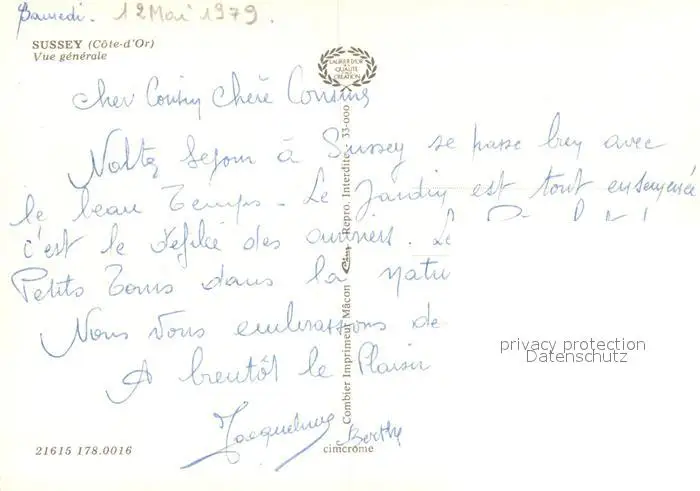 Samedi. 12 Mai 1979.
SUSSEY (Côte-d'Or)
Vue générale
LAURIER D'OR
DE LA
QUALITÉ
CRÉATION
Cher Cousin Chère Cousine
séjour à Sussey se passe bien avec
le beau Temps - Le Jardin est tout ensemencé
c'est le défilé des ouvriers. Le
Petits Tours dans la natu
Nous Vous embrassons de
A bientôt le Plaisir
Jacqueline Berthe
Combier Imprimeur Mâcon Cim Repro. Interdite 33-000
21615 178.0016
cimcrome
privacy protection
Datenschutz